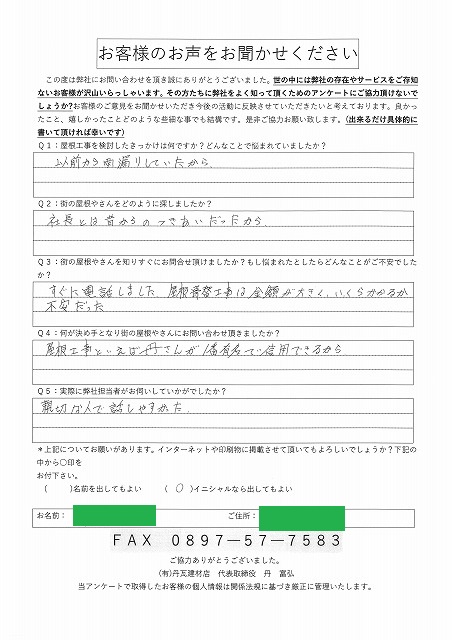 お客様のお声をお聞かせください
この度は弊社にお問い合わせを頂き誠にありがとうございました。世の中には弊社の存在やサービスをご存知
ないお客様が沢山いらっしゃいます。その方たちに弊社をよく知って頂くためのアンケートにご協力頂けないで
しょうか?お客様のご意見をお聞かせいただき今後の活動に反映させていただきたいと考えております。良かっ
たこと、嬉しかったことどのような些細な事でも結構です。是非ご協力お願い致します。(出来るだけ具体的に
書いて頂ければ幸いです)
Q1:屋根工事を検討したきっかけは何ですか?どんなことで悩まれていましたか?
以前から雨漏りしていたから
Q2:街の屋根やさんをどのように探しましたか?
社長とは昔からのつきあいだったから
Q3:街の屋根やさんを知りすぐにお問合せ頂けましたか?もし悩まれたとしたらどんなことがご不安でした
か?
すぐに電話しました。屋根葺替工事は金額が大きく、いくらかかるか
不安だった
Q4:何が決め手となり街の屋根やさんにお問い合わせ頂きましたか?
屋根工事といえば丹さんが1番有名で信用できるから
Q5:実際に弊社担当者がお伺いしていかがでしたか?
親切な人で話しやすかった
*上記についてお願いがあります。インターネットや印刷物に掲載させて頂いてもよろしいでしょうか?下記の
中から〇印を
お付下さい。
( )名前を出してもよい (○)イニシャルなら出してもよい
お名前: ご住所:
FAX 0897-57-7583
ご協力ありがとうございました。
(有)丹瓦建材店 代表取締役 丹 富弘
当アンケートで取得したお客様の個人情報は関係法規に基づき厳正に管理いたします。